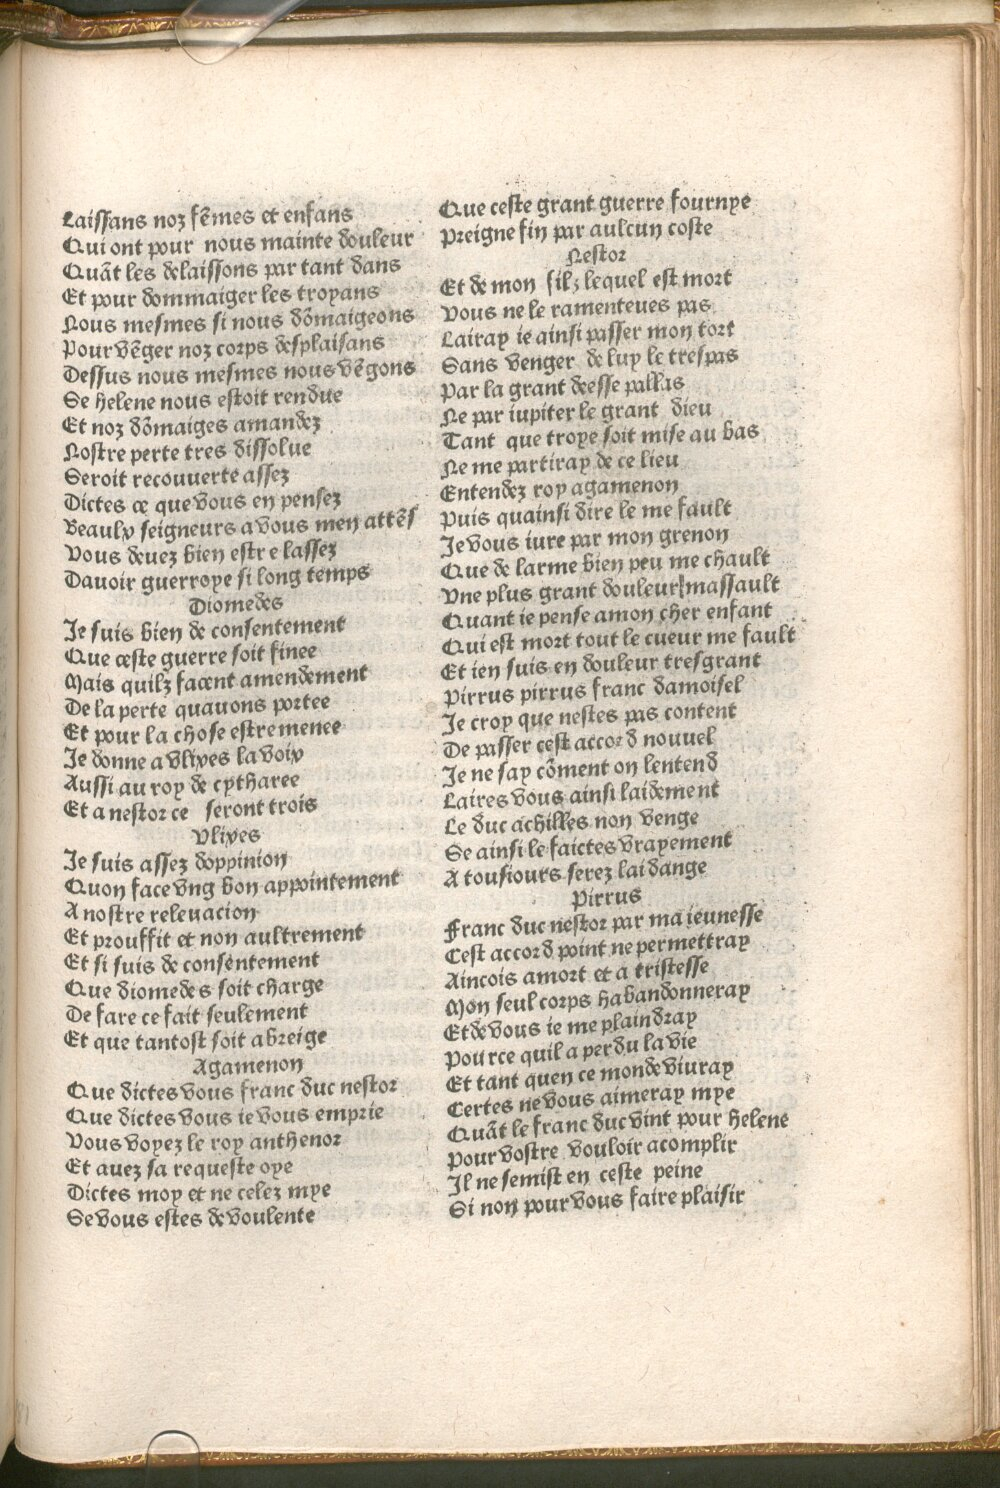 Laissans noz fẽmes et enfans
Qui ont pour nous mainte douleur
Quãt les delaissons par tant dans
Et pour dommaiger les troyans
Nous mesmes si nous dõmaigeons
Pour vẽger noz corps desplaisans
Dessus nous mesmes nous vẽgons
Se helene nous estoit rendue
Et noz dõmaiges amandez
Nostre perte tres dissolue
Seroit recouuerte assez
Dictes ce que vous en pensez
Beaulx seigneurs a vous men attẽs
Vous deuez bien estre lassez
Dauoir guerroye si long temps
Diomedes
Je suis bien de consentement
Que ceste guerre soit finee
Mais quilz facent amendement
De la perte quauons portee
Et pour la chose estre menee
Je donne a vlixes la voix
Aussi au roy de cytharee
Et a nestor ce seront trois
Vlixes
Je suis assez doppinion
Quon face vng bon appointement
A nostre releuacion
Et prouffit et non aultrement
Et si suis de consentement
Que diomedes soit charge
De fare ce fait seulement
Et que tantost soit abreige
Agamenon
Que dictes vous franc duc nestor
Que dictes vous ie vous emprie
Vous voyez le roy anthenor
Et auez sa requeste oye
Dictes moy et ne celez mye
Se vous estes de voulente
Que ceste grant guerre fournye
Preigne fin par aulcun coste
Nestor
Et de mon filz lequel est mort
Vous ne le ramenteues pas
Lairay ie ainsi passer mon tort
Sans venger de luy le trespas
Par la grant deesse pallas
Ne par iupiter le grant dieu
Tant que troye soit mise au bas
Ne me partiray de ce lieu
Entendez roy agamenon
Puis quainsi dire le me fault
Je vous iure par mon grenon
Que de larme bien peu me chault
Vne plus grant douleur massault
Quant ie pense amon cher enfant
Qui est mort tout le cueur me fault
Et ien suis en douleur tresgrant
Pirrus pirrus franc damoisel
Je croy que nestes pas content
De passer cest accord nouuel
Je ne say cõment on lentend
Laires vous ainsi laidement
Le duc achilles non venge
Se ainsi le faictes vrayement
A tousiours serez laidange
Pirrus
Franc duc nestor par ma ieunesse
Cest accord point ne permettray
Aincois amort et a tristesse
Mon seul corps habandonneray
Et de vous ie me plaindray
Pour ce quil a perdu la vie
Et tant quen ce monde viuray
Certes ne vous aimeray mye
Quãt le franc duc vint pour helene
Pour vostre vouloir acomplir
Il ne se mist en ceste peine
Si non pour vous faire plaisir